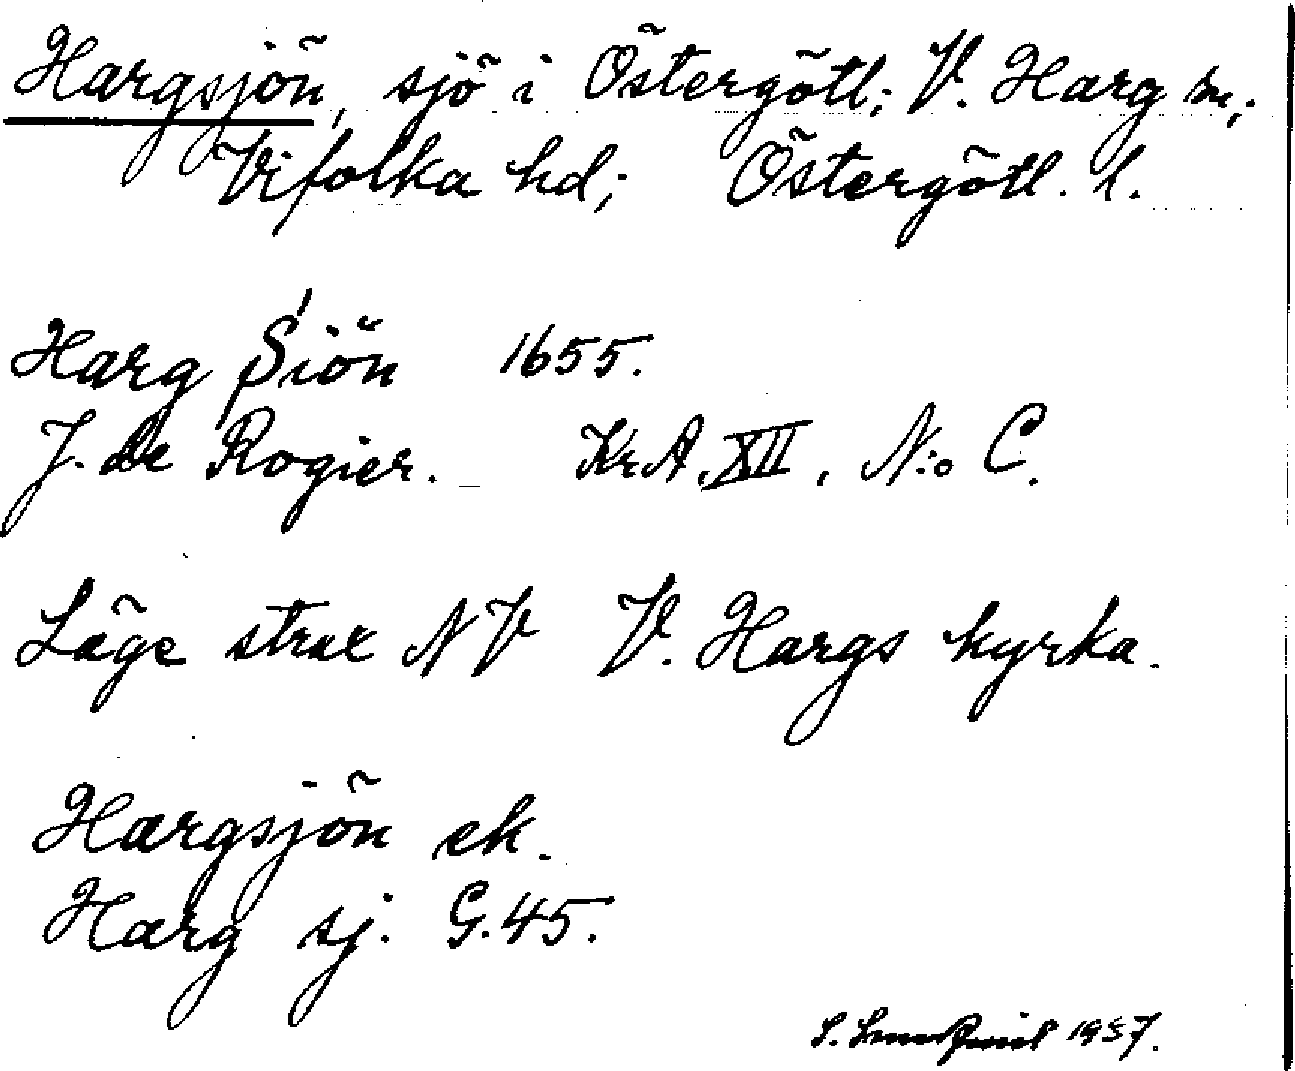 Hargsjön, sjö i Östergötl; V. Harg sn;
Vifolka hd; Östergötl. l.
Harg Siön 1655.
J. de Rogier. KrA. XII, N:o C.
Läge strax NV V. Hargs kyrka.
Hargsjön ek.
Harg sj. G.45.
S. 1937.